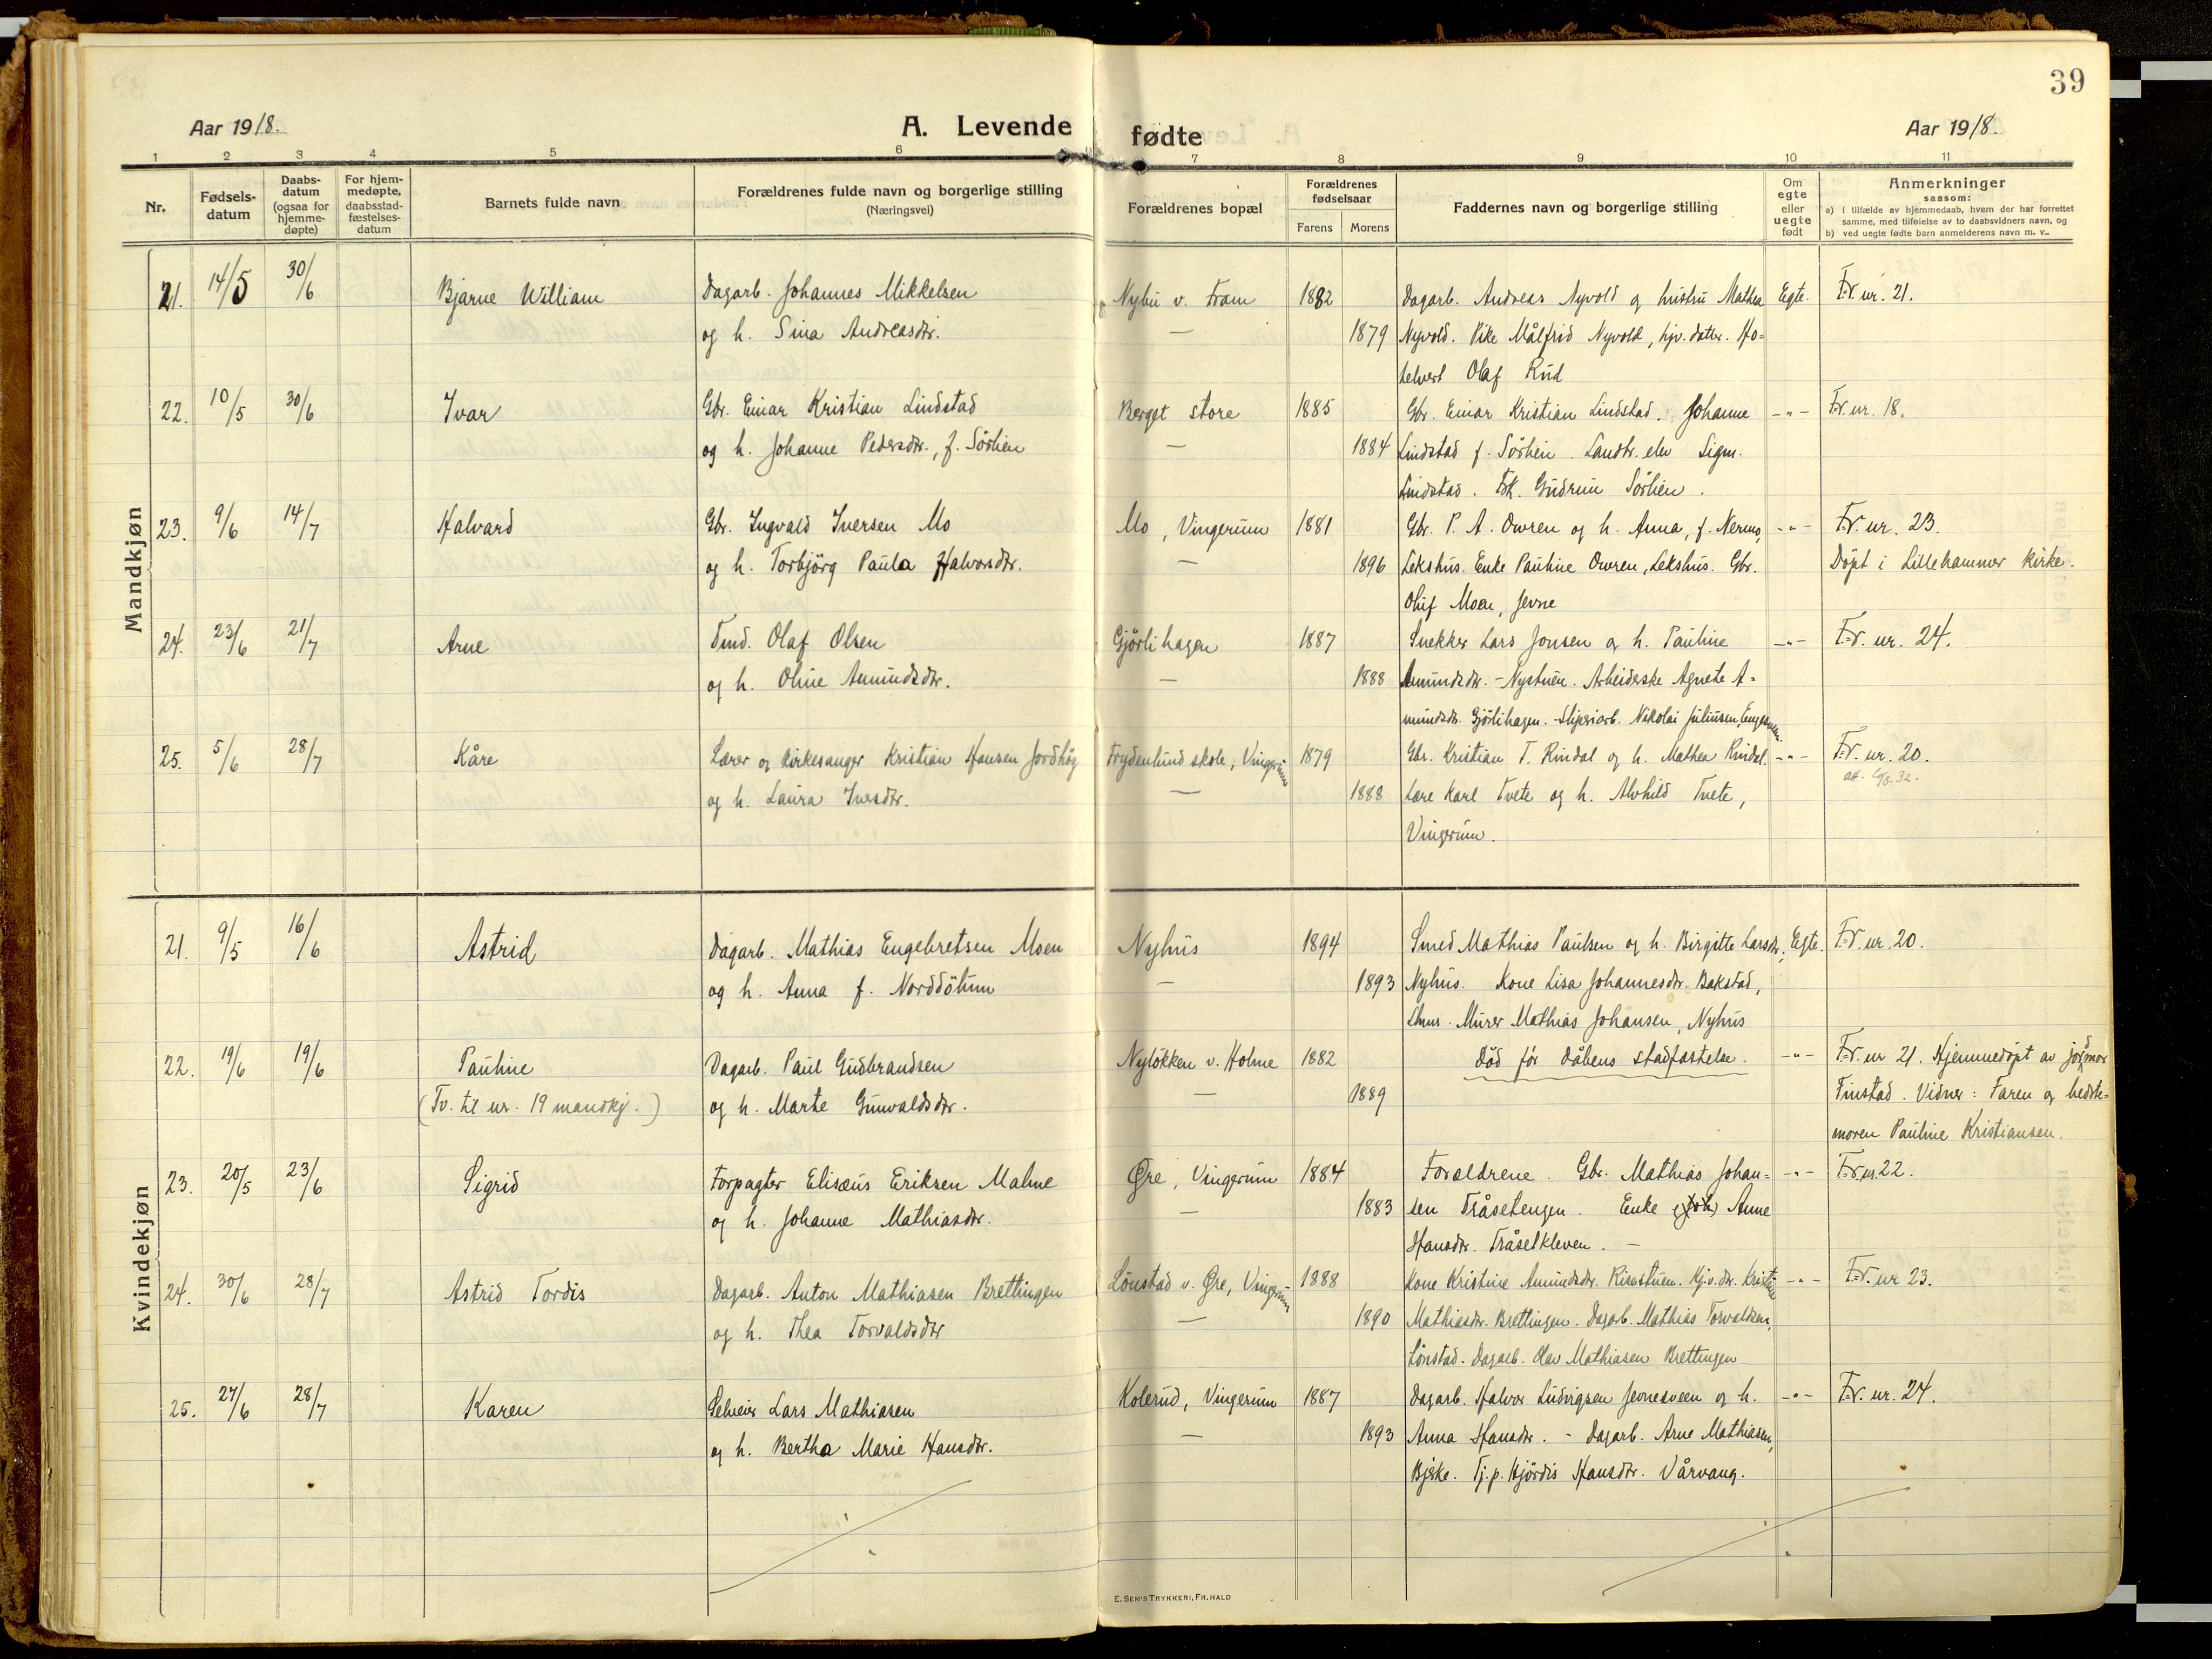 39
Aar 1918.
A. Levende
fødte
Aar 1918.
1 2 3 4 5 6 7 8 9 10 11
Nr.
Fødsels-
datum
Daabs-
datum
(ogsaa for
hjemme-
døpte)
For hjem-
medøpte,
daabsstad-
fæstelses-
datum
Barnets fulde navn
Forældrenes fulde navn og borgerlige stilling
(Næringsvei)
Forældrenes bopæl
Forældrenes
fødselsaar
Farens Morens
Faddernes navn og borgerlige stilling
Om
egte
eller
uegte
født
Anmerkninger
saasom:
a) i tilfælde av hjemmedaab, hvem der har forrettet
samme, med tilføielse av to daabsvidners navn, og
b) ved uegte fødte barn anmelderens navn m. v.
Mandkjøn
21. 14/5 30/6 Bjarne William Dagarb. Johannes Mikkelsen Nybu v. Fram 1882 Dagarb. Andreas Nyvold og hustru Mathea Egte. F.r. nr. 21.
og h. Sina Andreasdtr. — 1879 Nyvold. Pike Målfrid Nyvold, hjv. datter. Ho-
telvert Olaf Rud
22. 10/5 30/6 Ivar Gbr. Einar Kristian Lindstad Berget store 1885 Gbr. Einar Kristian Lindstad. Johanne -"- F.r. nr. 18.
og h. Johanne Pedersdtr., f. Sörlien — 1884 Lindstad f. Sörlien. Landbr. elev Sigm.
Lindstad. Frk. Gudrun Sörlien.
23. 9/6 14/7 Halvard Gbr. Ingvald Iversen Mo Mo, Vingerum 1881 Gbr. P. A. Owren og h. Anna, f. Nermo, -"- F.r. nr. 23.
og h. Torbjörg Paula Halvorsdtr. — 1896 Lekshus. Enke Pauline Owren, Lekshus. Gbr. Döpt i Lillehammer kirke.
Oluf Moen, Jevne
24. 23/6 21/7 Arne Tmd. Olaf Olsen Gjörlihagen 1887 Snekker Lars Jonsen og h. Pauline -"- F.r. nr. 24.
og h. Oline Amundsdtr. — 1888 Amundsdtr. - Nystuen. Arbeiderske Agnete A-
mundsdtr. Gjörlihagen. - Sliperiarb. Nikolai Juliusen,
25. 5/6 28/7 Kåre Lærer og kirkesanger Kristian Hansen Jordhøy Frydenlund skole, Vingerum 1879 Gbr. Kristian T. Rindal og h. Mathea Rindal. -"- F.r. nr. 20.
og h. Laura Iversdtr. — 1888 Lære Karl Tvete og h. Alvhild Tvete,
Vingerum.
Kvindekjøn
21. 9/5 16/6 Astrid Dagarb. Mathias Engebretsen Moen Nyhus 1894 Smed Mathias Paulsen og h. Birgitte Larsdtr., Egte. F.r. nr. 20.
og h. Anna f. Norddölum — 1893 Nyhus. Kone Lisa Johannesdtr. Bakstad,
Lhmr. Murer Mathias Johansen, Nyhus
22. 19/6 19/6 Pauline Dagarb. Paul Gudbrandsen Nylökken v. Holme 1882 Död för dåbens stadfæstelse. -"- F.r. nr 21. Hjemmedöpt av jordmor
(Tv. til nr. 19 mandkj.) og h. Marte Gunvaldsdtr. — 1889 Finstad. Vidner: Faren og bedste-
moren Pauline Kristiansen.
23. 20/5 23/6 Sigrid Forpagter Elisæus Eriksen Malme Øre, Vingerum 1884 Forældrene. Gbr. Mathias Johan- -"- F.r. nr. 22.
og h. Johanne Mathiasdtr. — 1883 sen Tråsetengen. Enke Anne
Hansdtr. Tråsetkleven. —
24. 30/6 28/7 Astrid Tordis Dagarb. Anton Mathiasen Brettingen Lönstad v. Øre, Vingerum 1888 Kone Kristine Amundsdtr. Risestuen. Hj.v.dtr. Kristine -"- F.r. nr 23.
og h. Thea Torvaldsdtr — 1890 Mathiasdtr. Brettingen. Dagarb. Mathias Torvaldsen,
Lönstad. Dagarb. Olav Mathiasen Brettingen
25. 27/6 28/7 Karen Selveier Lars Mathiasen Kolerud, Vingerum 1887 Dagarb. Halvor Ludvigsen Jevnesveen og h. -"- F.r. nr. 24.
og h. Bertha Marie Hansdtr. — 1893 Anna Hansdtr. - Dagarb. Arne Mathiasen,
Bjerke. Tj.p. Hjördis Hansdtr. Vårvang.
E. SEM'S TRYKKERI, FR. HALD